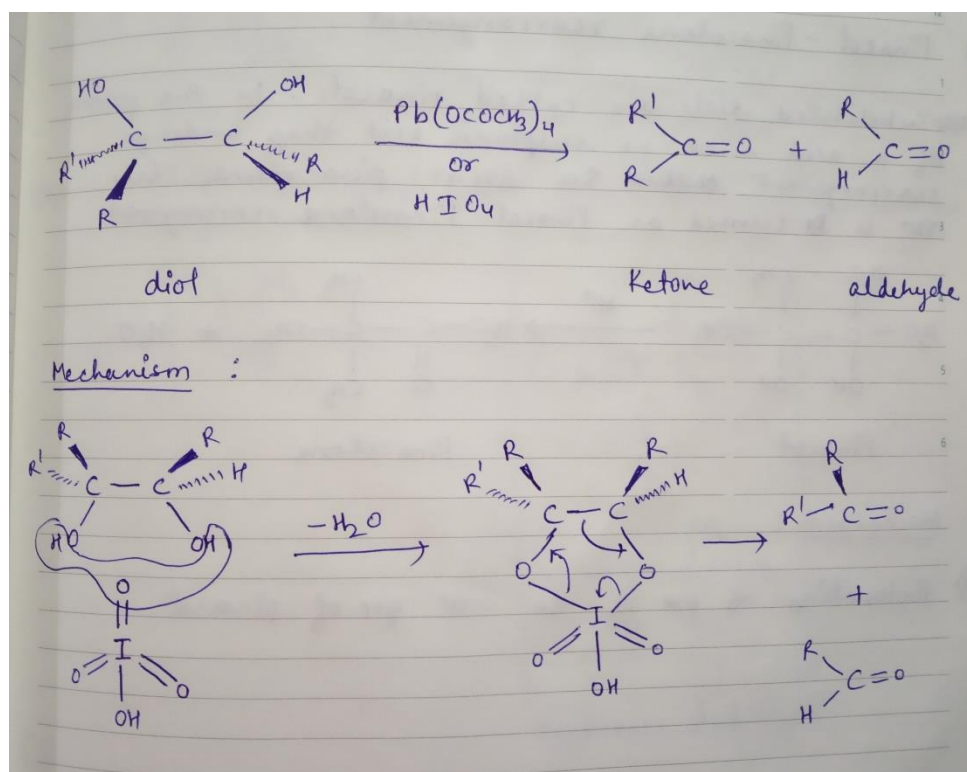 HO OH
R' C — C R
R H
Pb(OCOCH3)4
or
HIO4
R' C=O + R C=O
R H
diol Ketone aldehyde
Mechanism :
R R
R' C — C H
HO OH
O
I
O O
OH
-H2O
R R
R' C — C H
O O
I
O O
OH
R
R' C=O
+
R
C=O
H